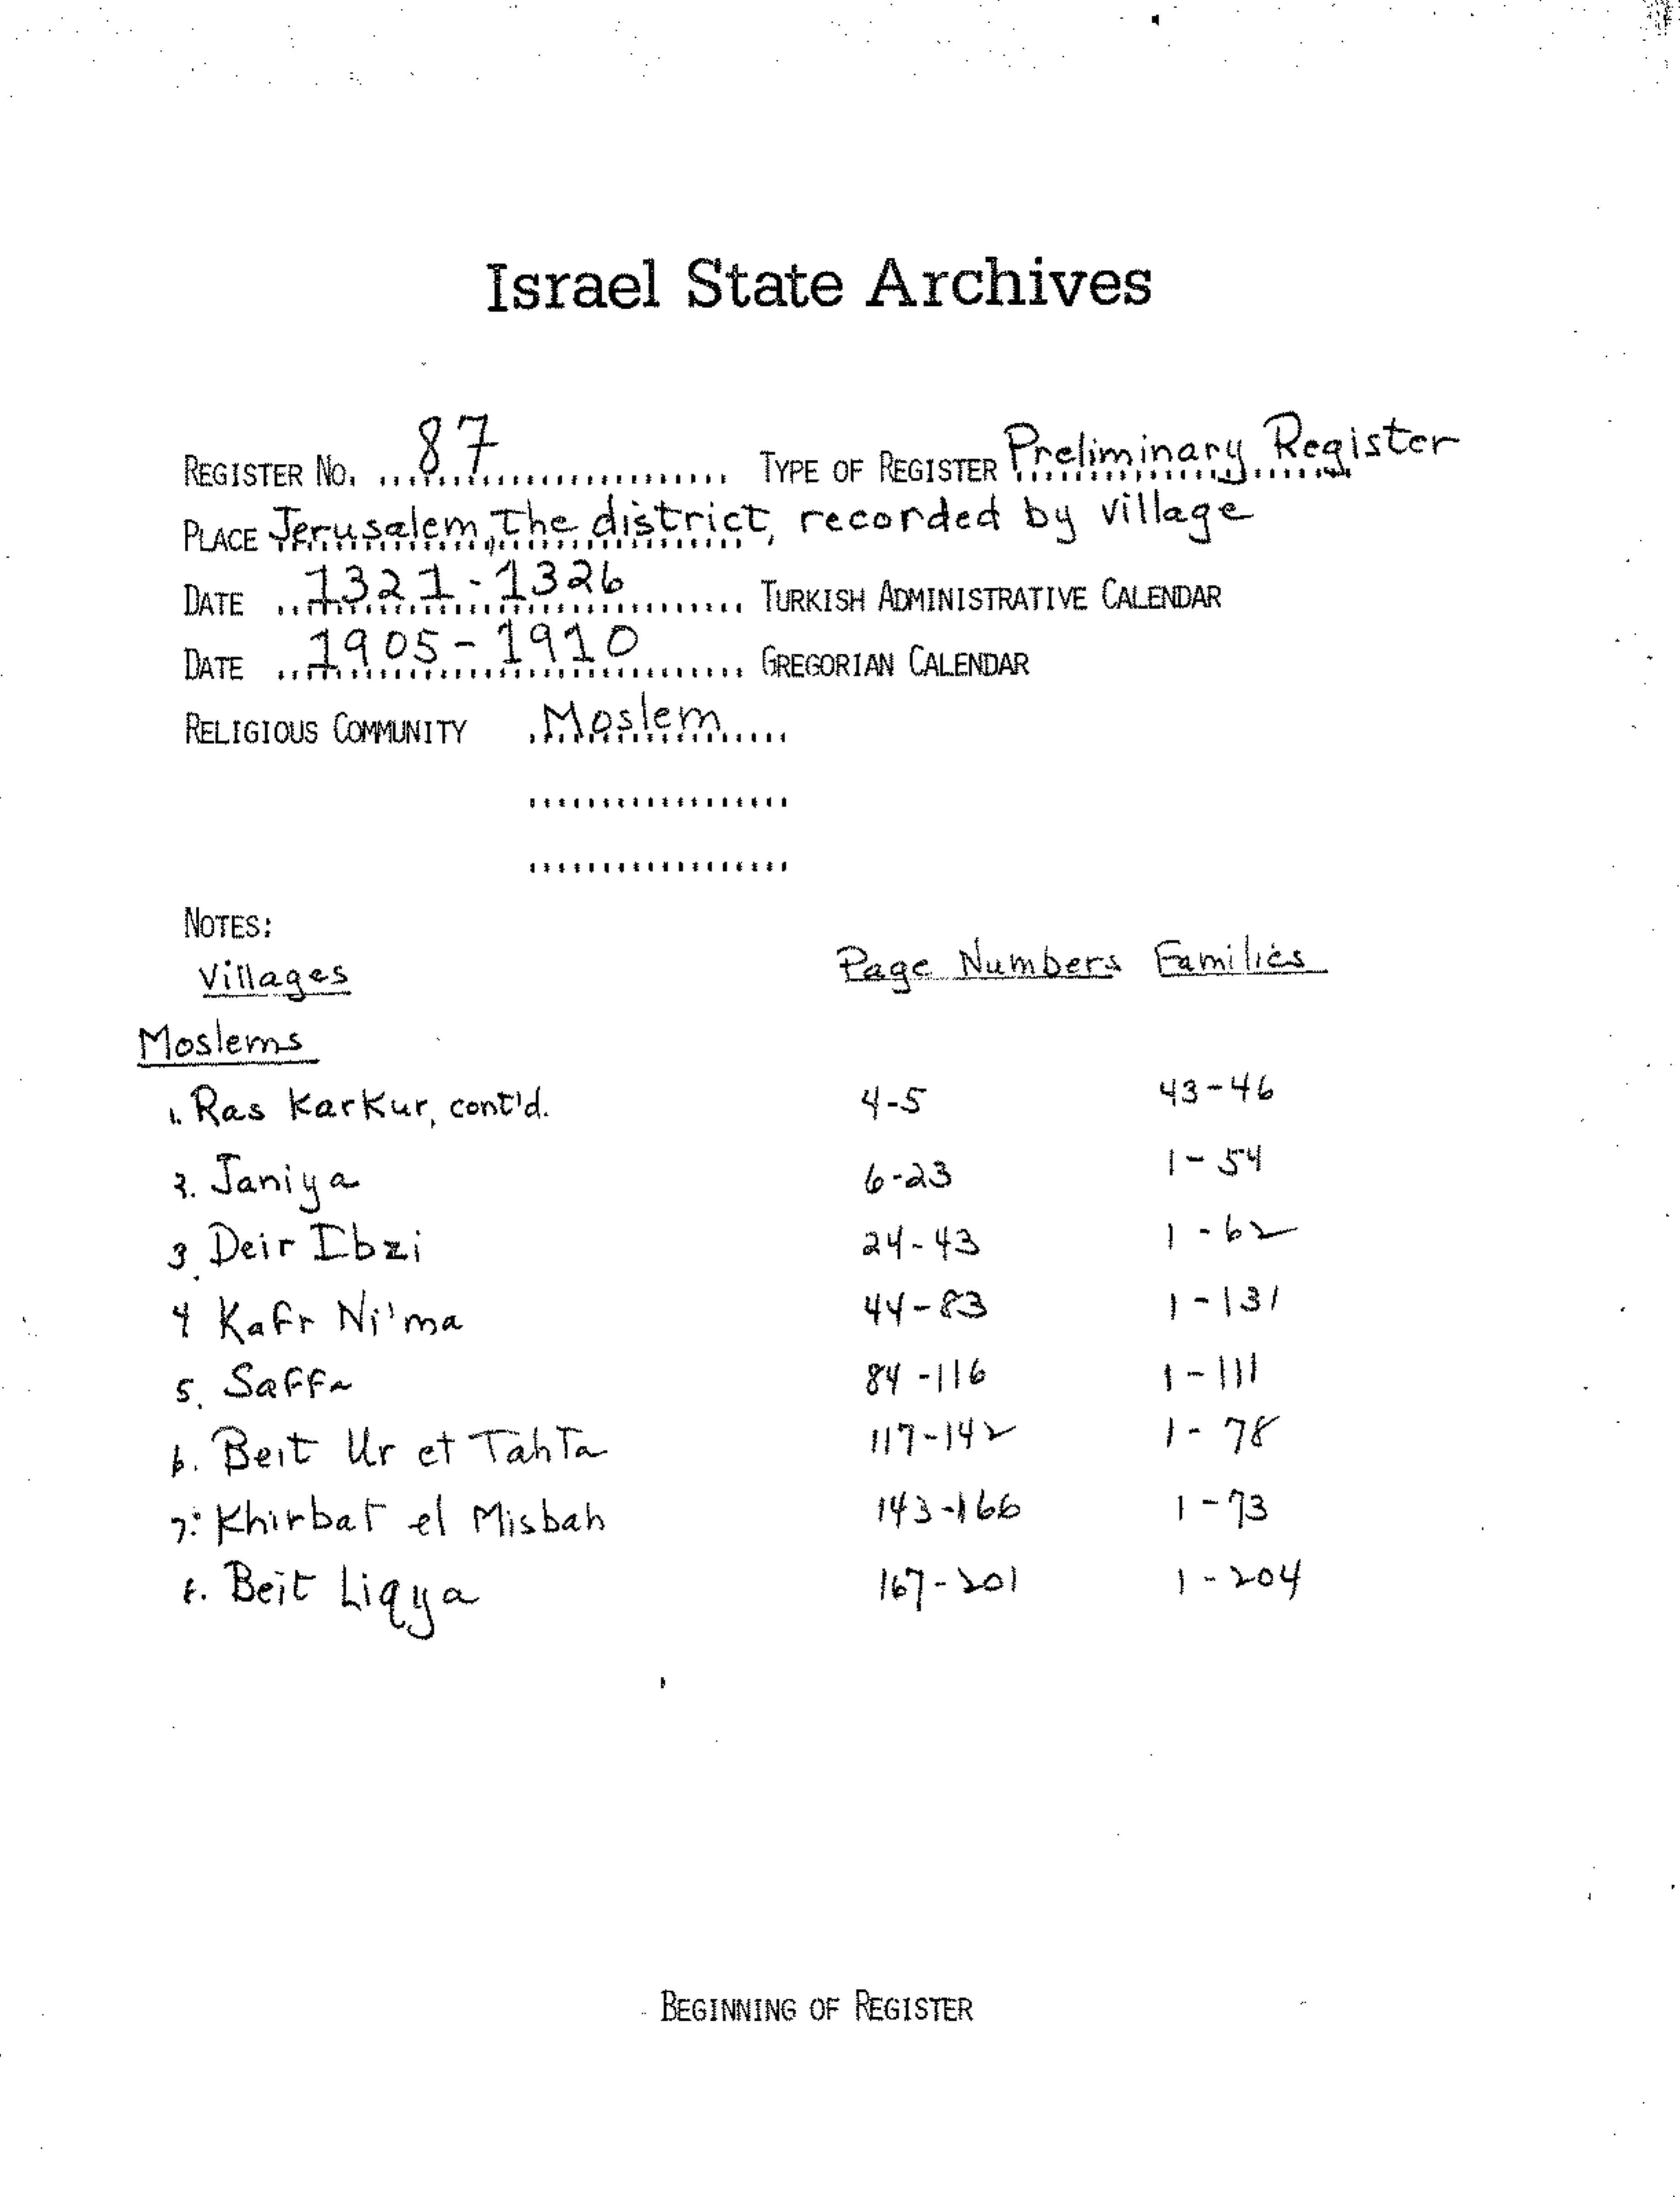 Israel State Archives
REGISTER NO. 87 TYPE OF REGISTER Preliminary Register
PLACE Jerusalem, the district, recorded by village
DATE 1321-1326 TURKISH ADMINISTRATIVE CALENDAR
DATE 1905-1910 GREGORIAN CALENDAR
RELIGIOUS COMMUNITY Moslem
NOTES:
Villages Page Numbers Families
Moslems
1. Ras Karkur, cont'd. 4-5 43-46
2. Janiya 6-23 1-54
3. Deir Ibzi 24-43 1-62
4 Kafr Ni'ma 44-83 1-131
5. Saffa 84-116 1-111
6. Beit Ur et Tahta 117-142 1-78
7. Khirbat el Misbah 143-166 1-73
8. Beit Liqya 167-201 1-204
BEGINNING OF REGISTER